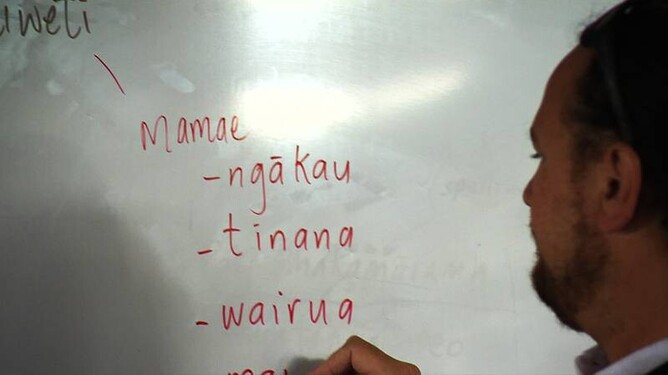 Mamae
- ngākau
- tinana
- wairua